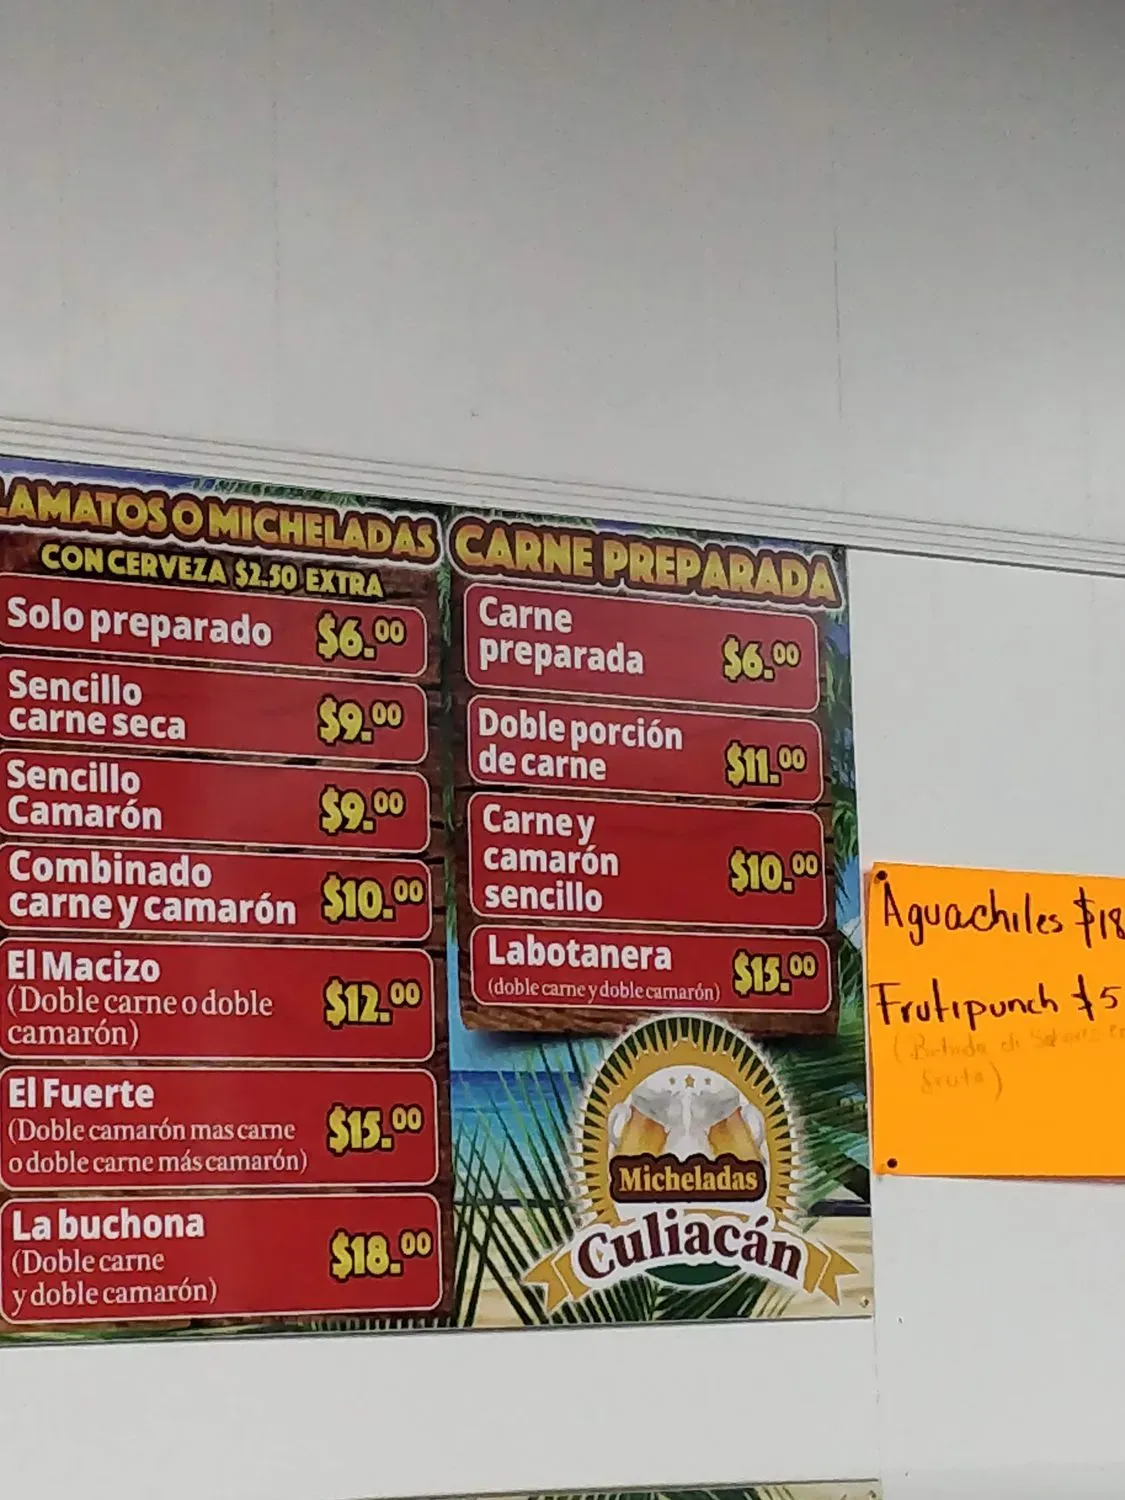 LAMATOS O MICHELADAS
CON CERVEZA $2.50 EXTRA
Solo preparado $6.00
Sencillo
carne seca $9.00
Sencillo
Camarón $9.00
Combinado
carne y camarón $10.00
El Macizo
(Doble carne o doble
camarón) $12.00
El Fuerte
(Doble camarón mas carne
o doble carne más camarón) $15.00
La buchona
(Doble carne
y doble camarón) $18.00
CARNE PREPARADA
Carne
preparada $6.00
Doble porción
de carne $11.00
Carne y
camarón
sencillo $10.00
Labotanera
(doble carne y doble camarón) $15.00
Micheladas
Culiacán
Aguachiles $18
Frutipunch $5
fruta)